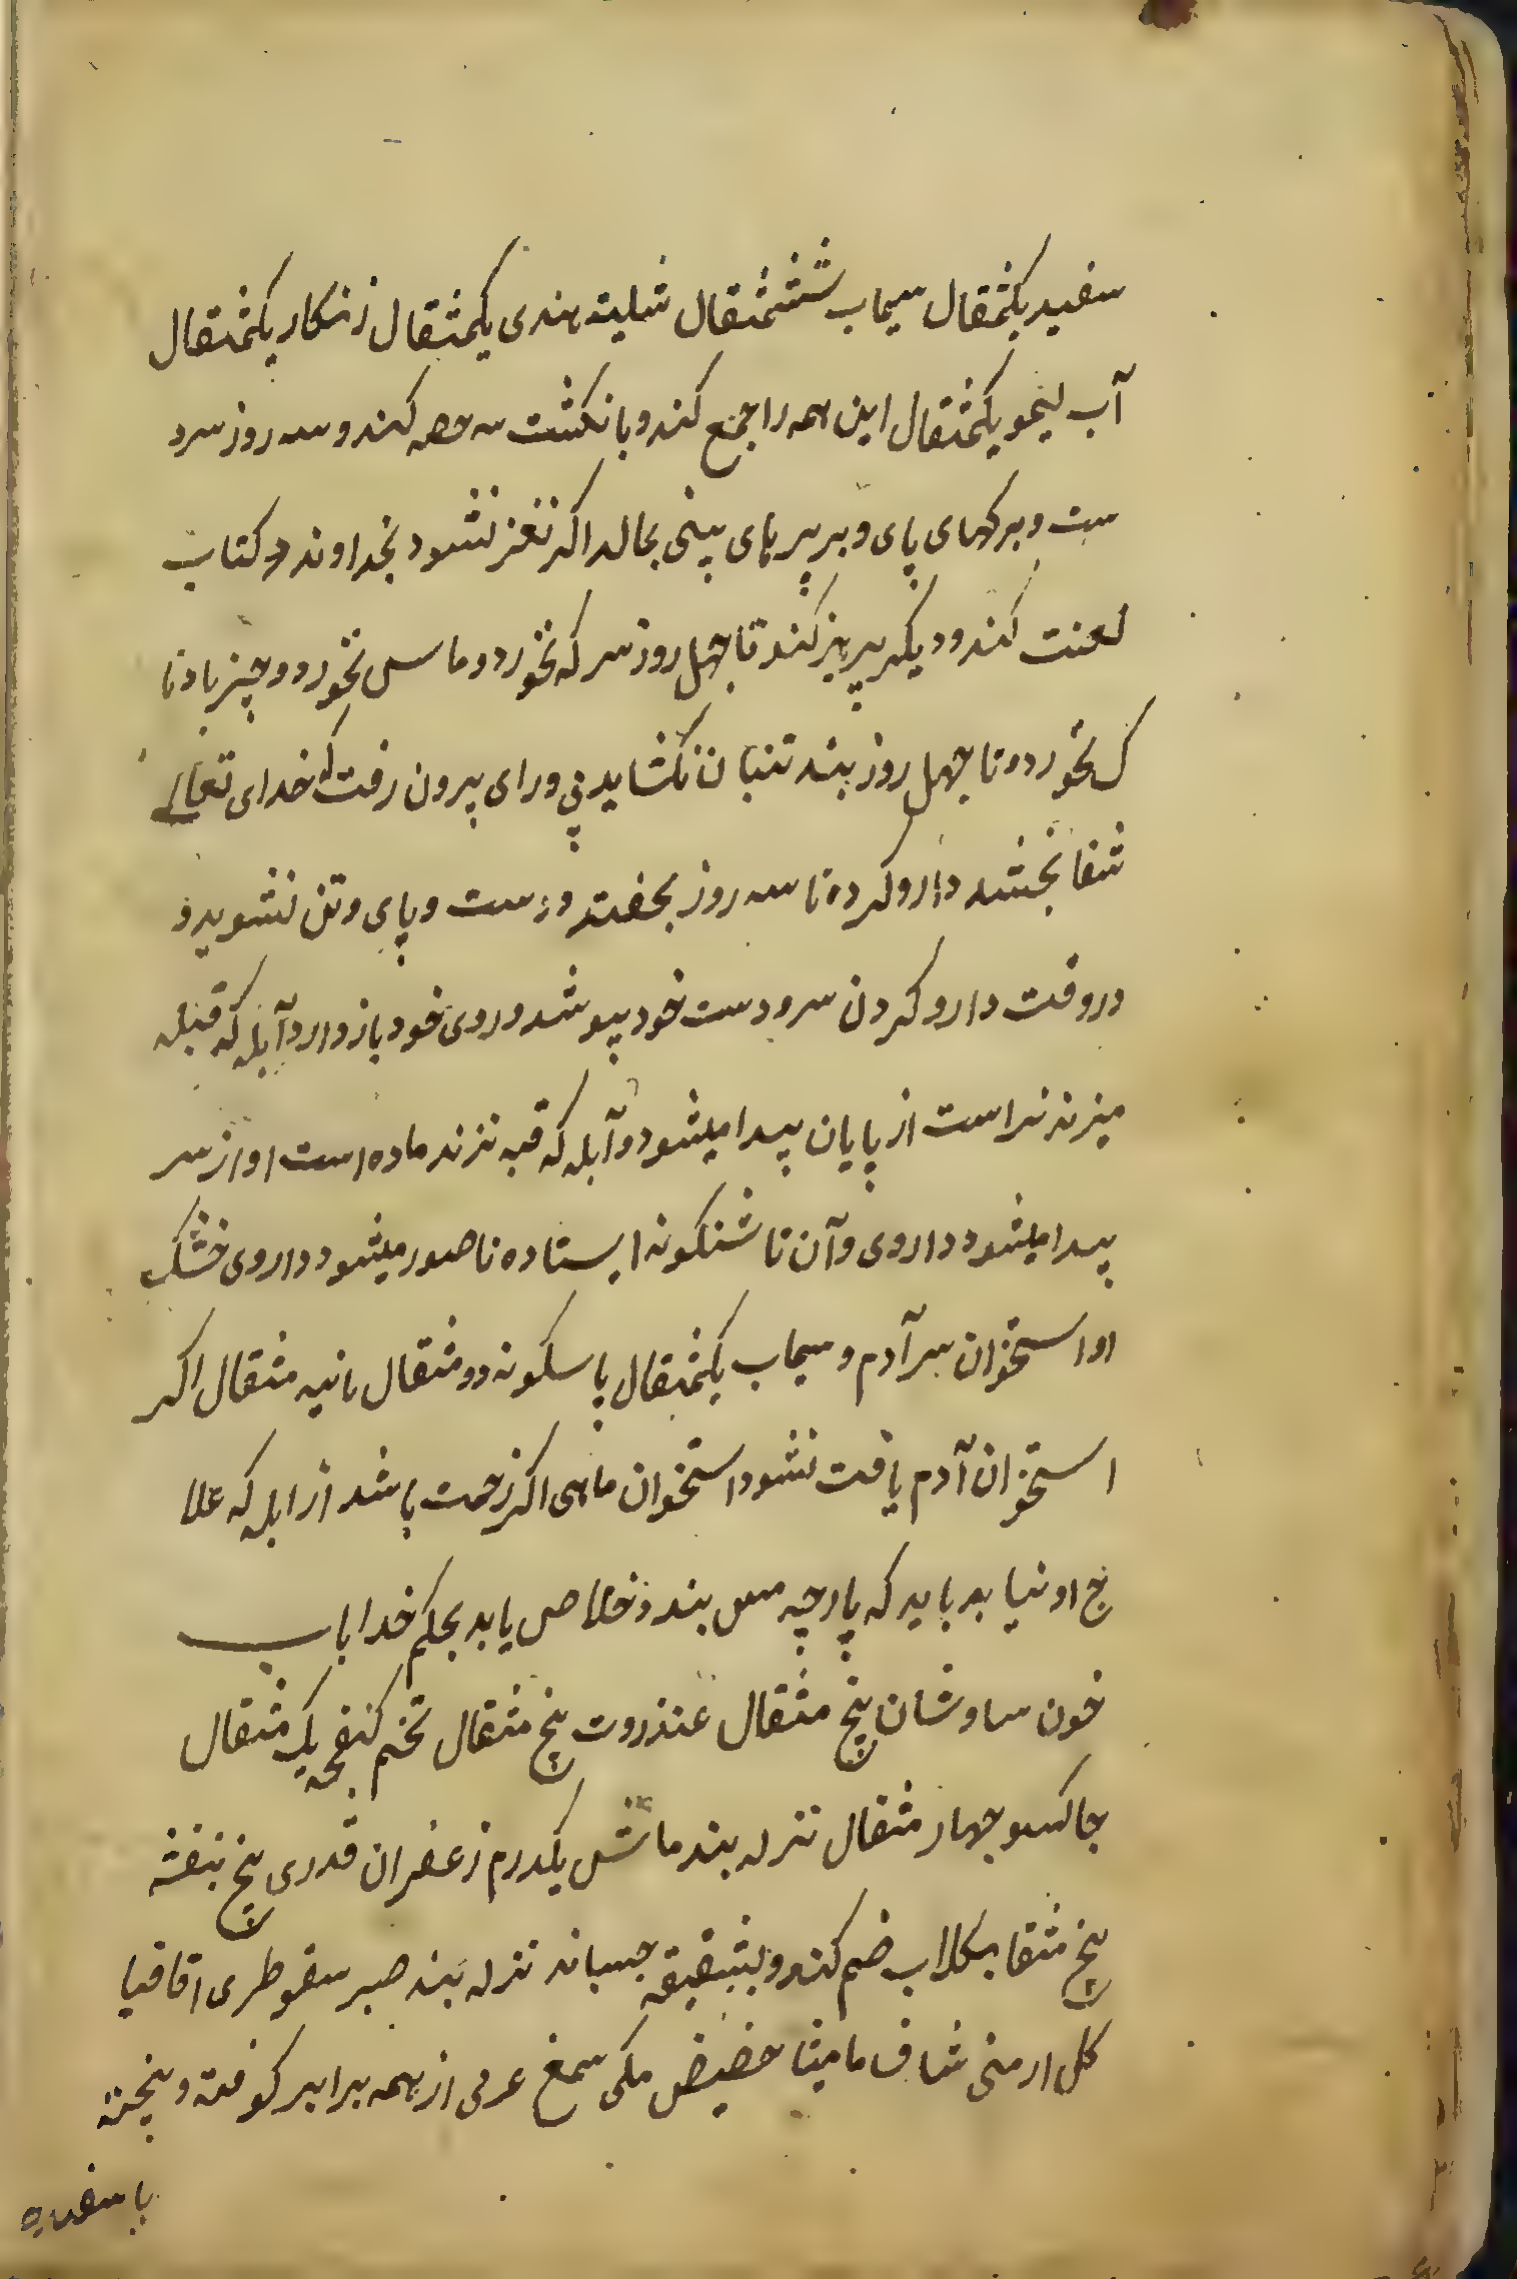 سفید یکمثقال سیماب ششمثقال شلیته هندی یکمثقال زنکار یکمثقال
آب لیمو یکمثقال این همه را جمع کند و بانکشت سه حصه کند و سه روز سرد
ست و برکهای پای و بر پرهای بینی بمالد اکر نغز نشود بخداوند و کتاب
لعنت کند و دیکر پرهیز کند تا چهل روز سرکه نخورد و ماس نخورد و چیز باد نا
ک نخورده تا چهل روز بند تنبان نکشاید پی ورای بیرون رفت که خدای تعالی
شفا بخشد دارو کرده تا سه روز بخفتد و دست و پای و تن نشوید و
در وقت دارو کردن سر و دست خود بپوشد و روی خود باز دارد آبله که قبله
میزند نر است از پایان پیدا میشود و آبله که قبه نزند ماده است او از سر
پیدا میشود داروی و آن تا شنکونه ایستاده ناصور میشود داروی خشک
او استخوان سر آدم و سیماب یکمثقال پاسکونه دو مثقال نانیه مثقال اکر
استخوان آدم یافت نشود استخوان ماهی اکر زحمت باشد از ابله که علا
ج او نیابد باید که پارچه مس بندد خلاص یابد بحکم خدا باب
خون ساوشان پنج مثقال عنذروت پنج مثقال تخم کنفچه یک مثقال
جاکسو چهار مثقال نزله بند ماش یکدرم زعفران قدری بیخ بنفشه
پنج مثقا بکلاب ضم کند و بشقیقه چسباند نزله بند صبر سقوطری اقاقیا
کل ارمنی شاف مامیثا حضیض مکی سمغ عربی از همه برابر کوفته و بیخته
با سفیده